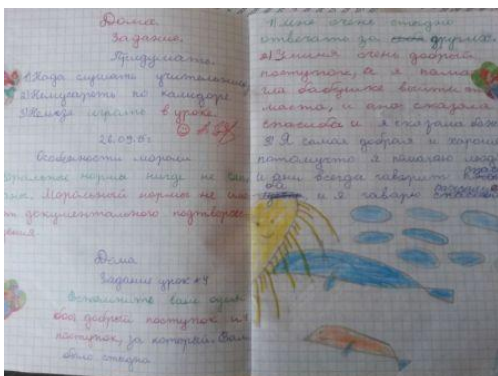 Дома.
Задание.
Придумать.
1) Нада слушать учительницу
2) Нельзя играть по калидоре
3) Нельзя играть в уроке.
26.09.6г
Особености морали
Моральные нормы нигде не
Моральный нормы не
документального подтвор
дения
Дома
Задание урок №4
Вспомните
добрый поступок и
поступок, за который Вам
было стыдно
1) мне очень стыдно
отвечать за другых.
2) У миня очень добрый
поступок, а я пама
гла бабушке выйти
маста, и ана сказала
спасиба и я сказала
3) Я самая добрая и хароша
потомучто я помагаю люд
и ани всегда гаварит
и я гаварю